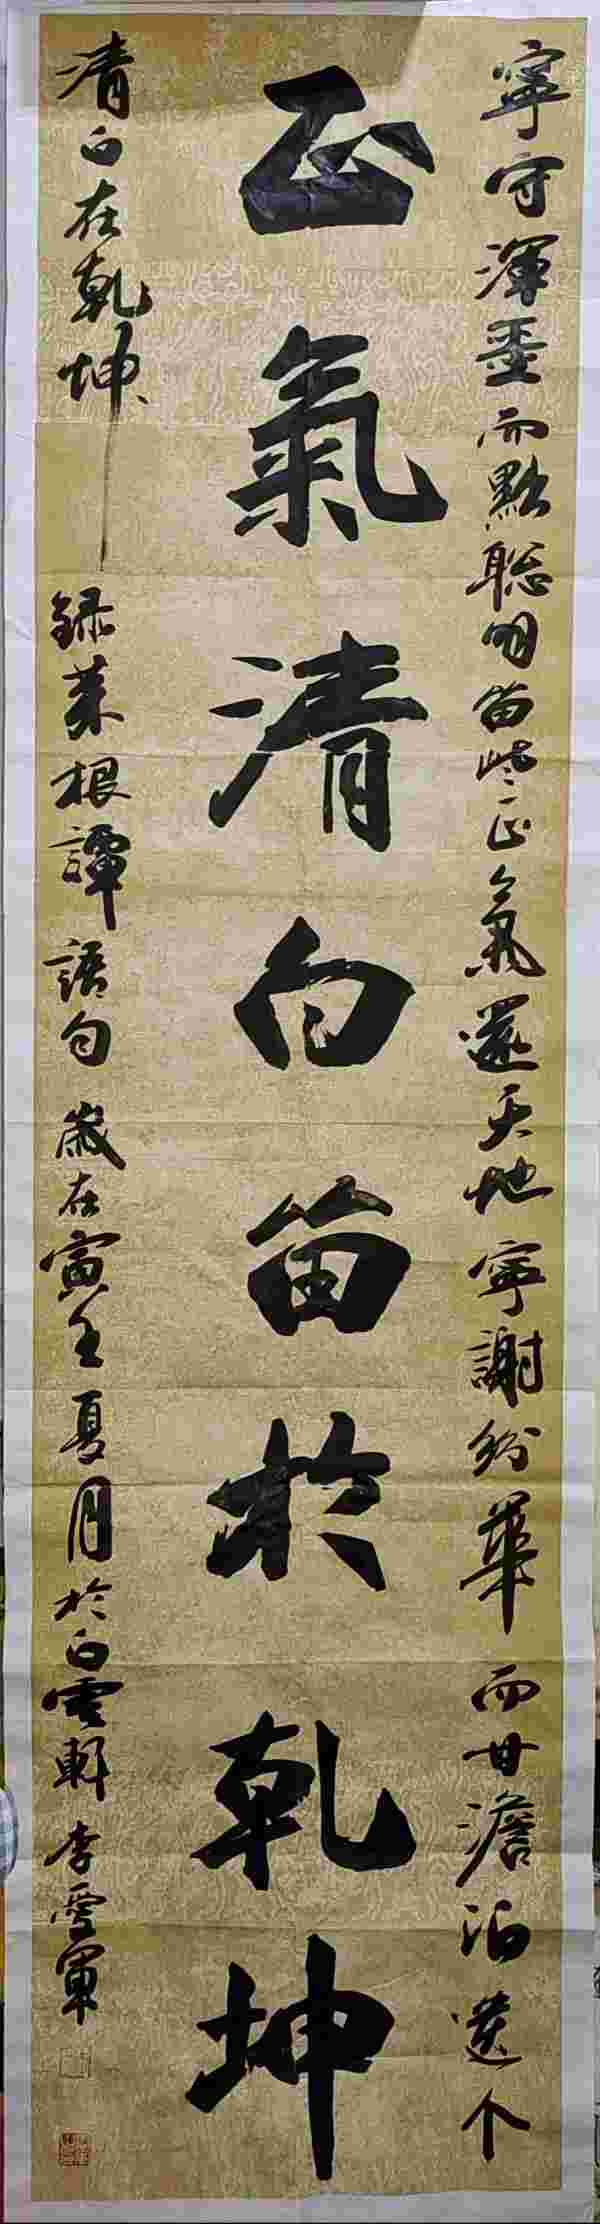 寧守渾噩而黜聰明留些正氣還天地寧謝紛華而甘澹泊遺个
正氣清白留於乾坤
清白在乾坤
錄菜根譚語句歲在寅壬夏月於白雲軒李雪軍